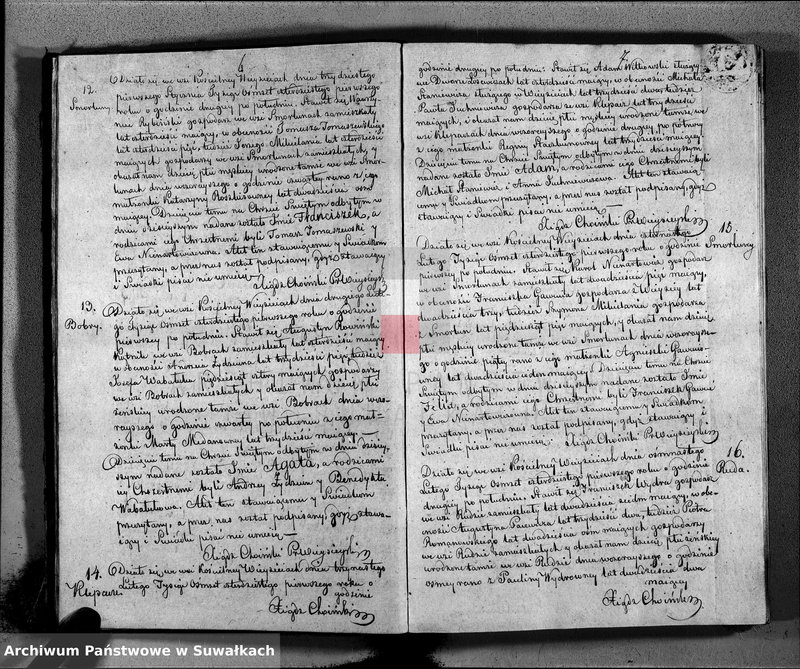 6
12.
Smorluny.
Działo się we wsi Kościelney Wieyściejach dnia trzydziestego
pierwszego Stycznia Tysiąc Osmset czterdziestego pierwszego
roku o godzinie drugiey po południu. Stawił się Wawrzy-
gospodarz we wsi Smorlunach zamieszkały
lat czterdzieści maiący, w obecności Tomasza Tomaszewskiego
lat czterdzieści pięć, tudzież
maiących gospodarzy we wsi Smorlunach zamieszkałych, y
okazał nam dziecię płci męzkiey urodzone tamże we wsi Smor-
lunach dnia wczorayszego o godzinie czwartey rano z iego
małżonki Katarzyny lat dwadzieścia ośm
maiącey. Dziecięciu temu na Chrzcie Świętym odbytym w
dniu dzisieyszym nadane zostało Imie Franciszek, a
rodzicami iego Chrzestnemi byli Tomasz Tomaszewski y
Ewa Nienartowiczowa. Akt ten stawaiącemu y Świadkom
przeczytany, a przez nas został podpisany, gdyż stawaiący
i Świadki pisać nie umieią.
Xiądz Choiński
13.
Bobry.
Działo się we wsi Kościelney Wieyściejach dnia drugiego Lute-
go Tysiąc Osmset czterdziestego pierwszego roku o godzinie
pierwszey po południu. Stawił się Augustyn
we wsi Bobrach zamieszkały lat czterdzieści maiący
w obecności Andrzeia lat trzydzieści pięć, tudzież
Józefa Wabaluka pięćdziesiąt cztery maiących, gospodarzy
we wsi Bobrach zamieszkałych y okazał nam dziecię płci
żeńskiey urodzone tamże we wsi Bobrach dnia wczo-
rayszego o godzinie czwartey po południu z iego mał-
żonki Marty lat trzydzieści maiącey.
Dziecięciu temu na Chrzcie Świętym odbytym w dniu dzisiey-
szym nadane zostało Imie Agata, a rodzicami
iey Chrzestnemi byli Andrzey y Benedykta
Wabalukowa. Akt ten stawaiącemu y Świadkom
przeczytany, a przez nas został podpisany, gdyż stawa-
iący i Świadki pisać nie umieią.
Xiądz Choiński
14.
Działo się we wsi Kościelney Wieyściejach dnia trzynastego
Lutego Tysiąc Osmset czterdziestego pierwszego roku o
godzinie
Xiądz Choiński
7
godzinie drugiey po południu: Stawił się Adam Witkowski służący
we Dworze lat czterdzieści maiący, w obecności Michała
służącego w Wieyściejach lat trzydzieści dwa, tudzież
Pawła Juchniewicza gospodarza ze wsi lat trzydzieści
maiących, i okazał nam dziecię płci męzkiey urodzone tamże we
wsi dnia wczorayszego o godzinie drugiey po północy
z iego małżonki Reginy lat trzydzieści maiącey
Dziecięciu temu na Chrzcie Świętym odbytym w dniu dzisieyszym
nadane zostało Imie Adam, a rodzicami iego Chrzestnemi byli
Michał i Anna Juchniewiczowa. Akt ten stawaią-
cemu y Świadkom przeczytany, a przez nas został podpisany, gdyż
stawaiący i Świadki pisać nie umieią.
Xiądz Choiński
15.
Smorluny
Działo się we wsi Kościelney Wieyściejach dnia
Lutego Tysiąc Osmset czterdziestego pierwszego roku o godzinie
pierwszey po południu. Stawił się Karol Nienartowicz gospodarz
we wsi Smorlunach zamieszkały lat dwadzieścia pięć maiący,
w obecności Franciszka gospodarza z Wieyściey lat
dwadzieścia trzy, tudzież Szymona gospodarza
z Smorlun lat pięćdziesiąt pięć maiących, y okazał nam dziecię
płci męzkiey urodzone tamże we wsi Smorlunach dnia wczoraysze-
go o godzinie piątey rano z iego małżonki Agnieszki
lat dwadzieścia ieden maiącey. Dziecięciu temu na Chrzcie
Świętym odbytym w dniu dzisieyszym nadane zostało Imie
Felix, a rodzicami iego Chrzestnemi byli Franciszek
y Ewa Nienartowiczowa. Akt ten stawaiącemu y Świadkom
przeczytany, a przez nas został podpisany, gdyż stawaiący i
Świadki pisać nie umieią. Xiądz Choiński
16.
Ruda.
Działo się we wsi Kościelney Wieyściejach dnia osmnastego
Lutego Tysiąc Osmset czterdziestego pierwszego roku o godzinie
drugiey po południu. Stawił się Franciszek Wydra gospodarz
we wsi Rudzie zamieszkały lat dwadzieścia siedm maiący, w obe-
cności Augustyna lat trzydzieści dwa, tudzież Piotra
Romanowskiego lat dwadzieścia ośm maiących gospodarzy
we wsi Rudzie zamieszkałych y okazał nam dziecię płci żeńskiey
urodzone tamże we wsi Rudzie dnia wczorayszego o godzinie
osmey rano z Pauliny Wydrowney lat dwadzieścia dwa
maiącey
Xiądz Choiński
Archiwum Państwowe w Suwałkach